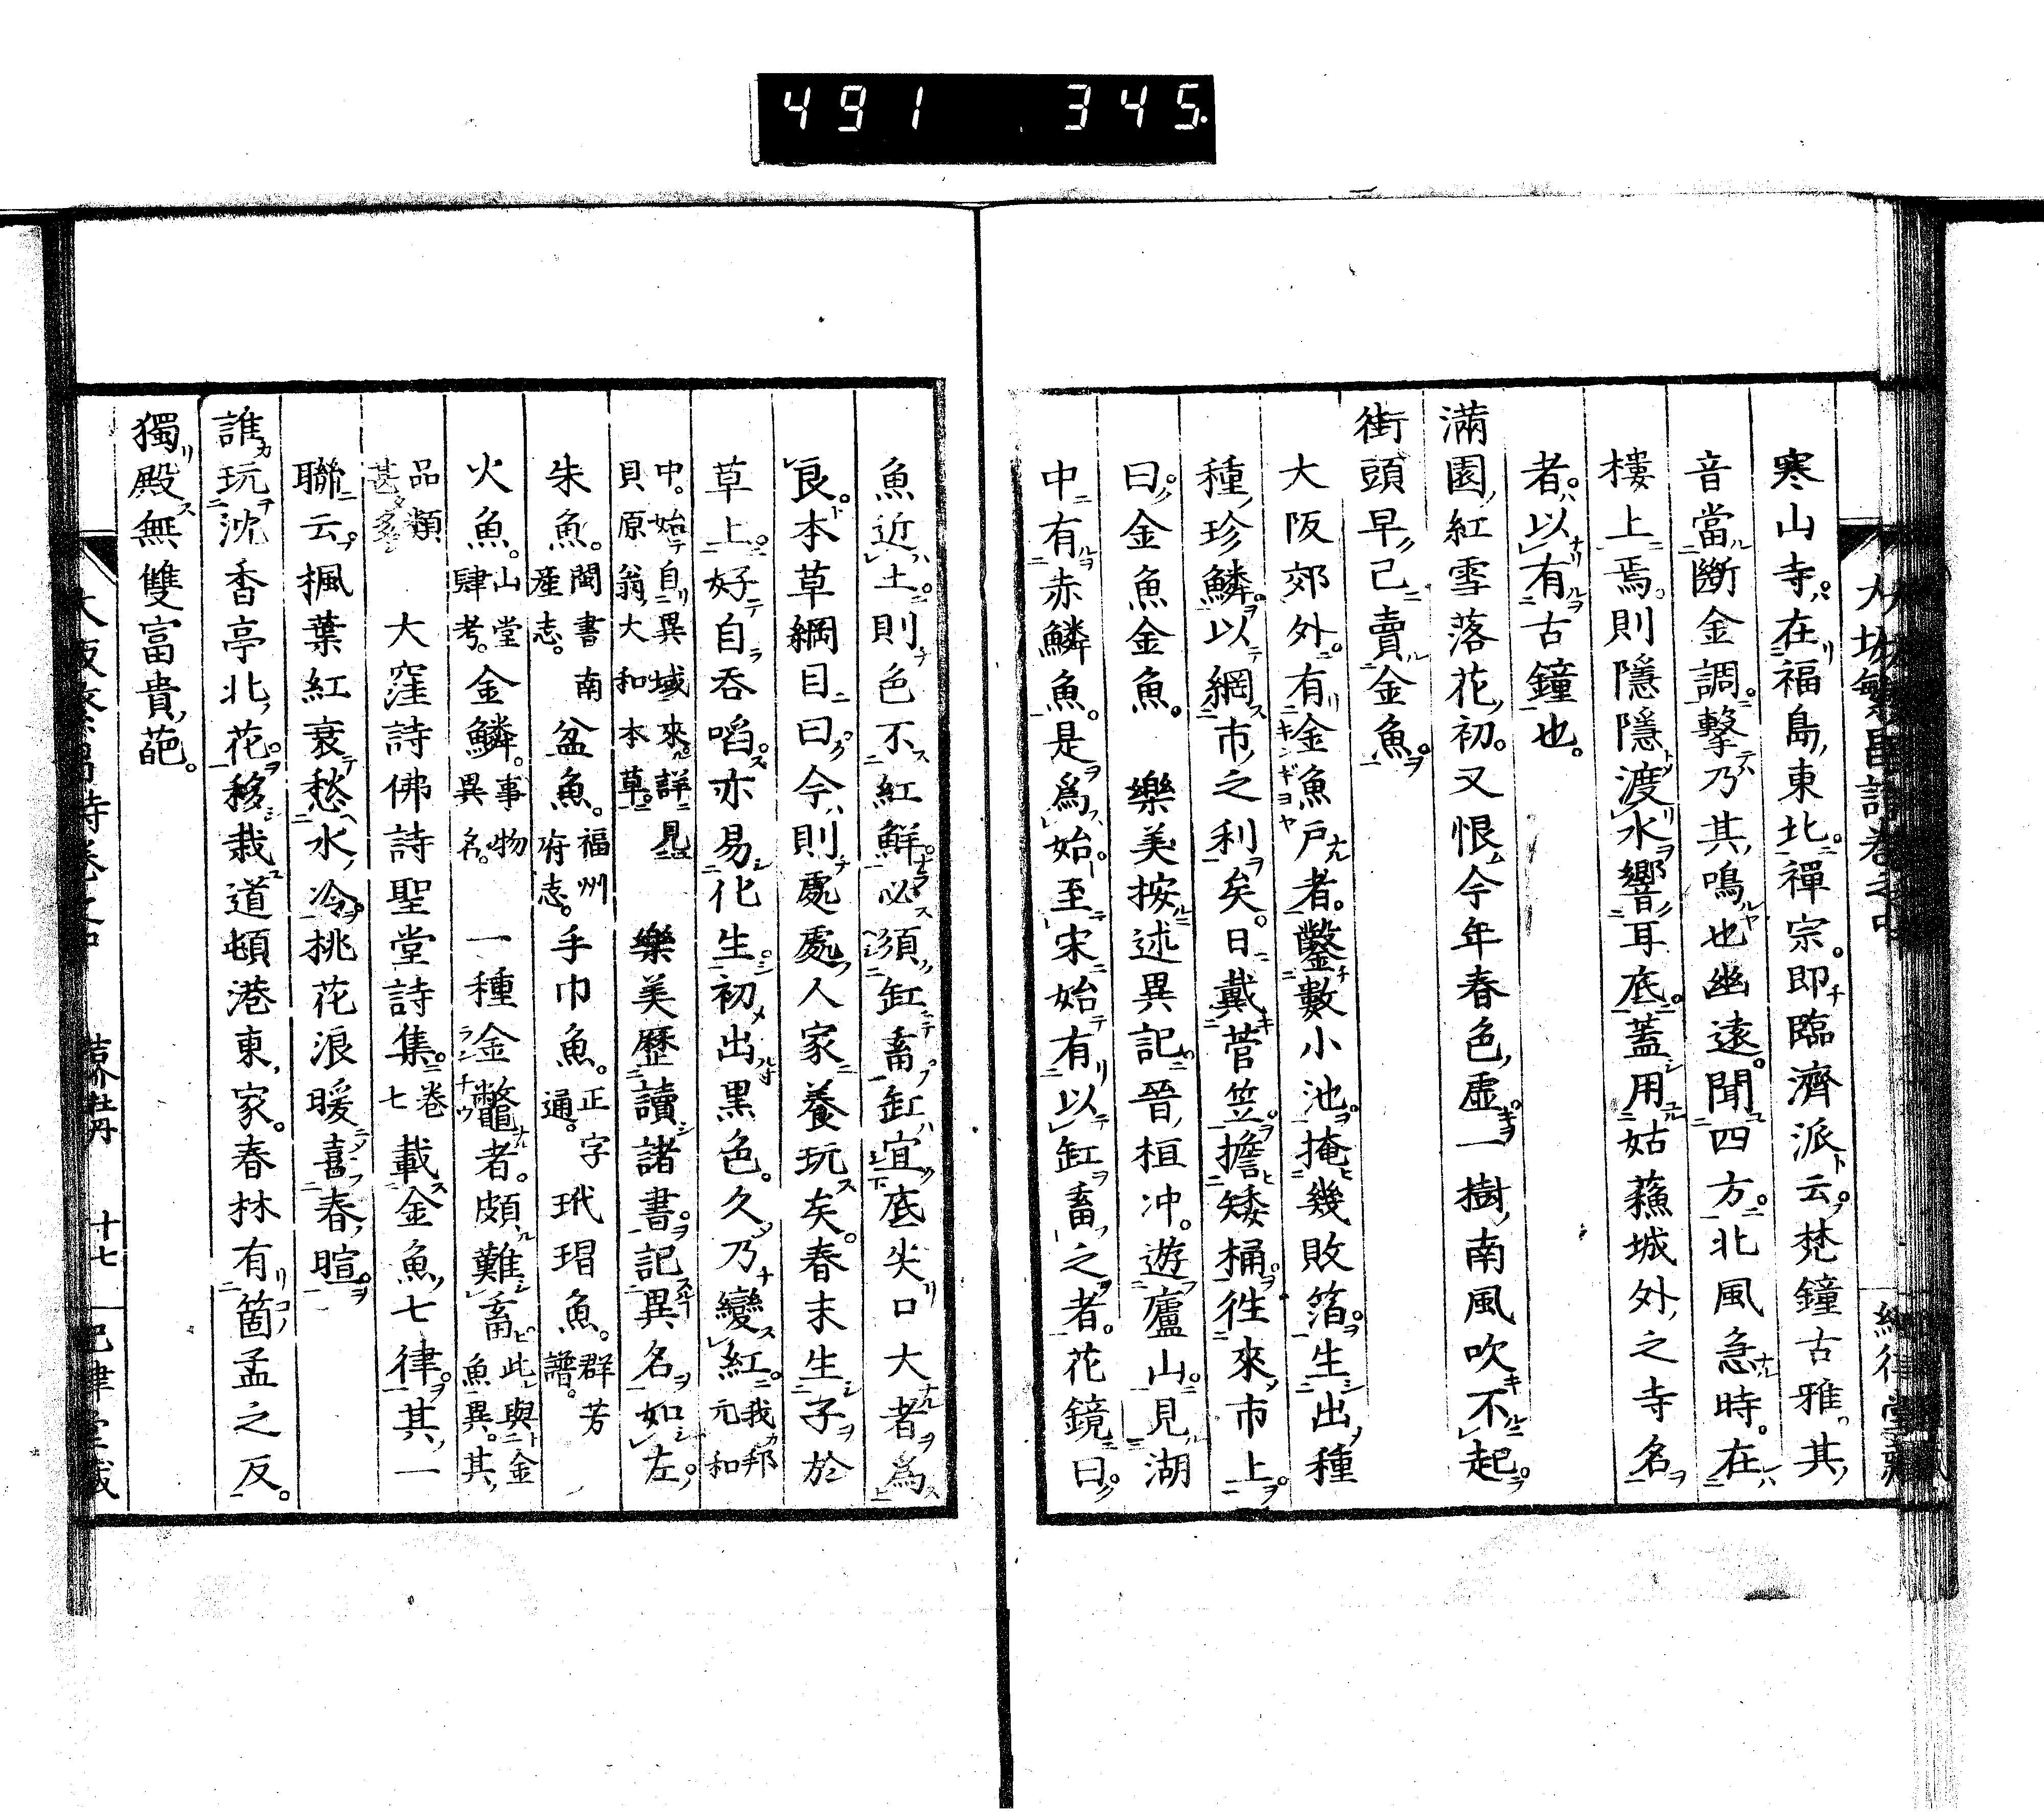 491 345.
寒山寺在福島東北禪宗。即臨濟派云。梵鐘古雅。其
音當斷金調。擊乃其鳴也幽遠。聞四方。北風急時。在
樓上焉。則隱隱渡水響耳底。蓋用姑蘓城外之寺名
者。以有古鐘也。
滿園紅雪落花初。又恨今年春色虛。一樹南風吹不起。
街頭早已賣金魚。
大阪郊外。有金魚戶者。鑿數小池。掩幾敗箔。生出種
種珍鱗。以網市之利矣。日戴菅笠。擔矮桶。徃來市上。
曰。金魚金魚。 樂美按述異記。晉桓冲。遊廬山。見湖
中有赤鱗魚。是爲始。至宋始有以缸畜之者。花鏡曰。
魚近土。則色不紅鮮。必須缸畜。缸宜底尖口大者爲
良。本草綱目曰。今則處處人家養玩矣。春末生子於
草上。好自吞啗。亦易化生。初出黑色。久乃變紅。我邦元和
中。始自異域來。詳見貝原翁大和本草。 樂美歷讀諸書。記異名如左。
朱魚。閩書南產志。 盆魚。福州府志。 手巾魚。正字通。 玳瑁魚。群芳譜。
火魚。山堂肆考。 金鱗。事物異名。 一種金鼈者。頗難畜。此與金魚異。其
品類甚多。 大窪詩佛詩聖堂詩集。卷七載金魚七律。其一
聯云。楓葉紅衰愁水冷。桃花浪暖喜春暄。
誰玩沈香亭北花。移栽道頓港東家。春林有箇孟之反。
獨殿無雙富貴葩。
吉介牡丹 十七